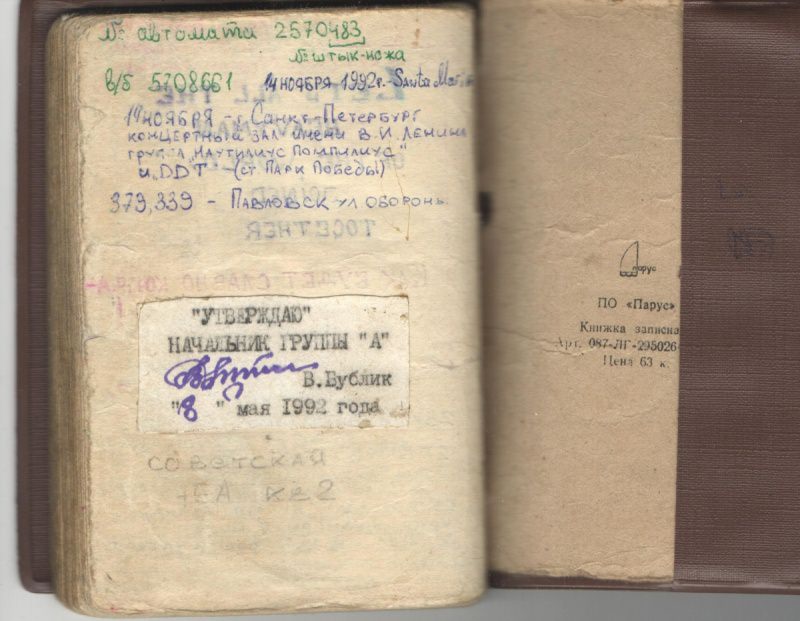 № автомата 2570483
№ штык-ножа
в/б 5708661 14 ноября 1992г. Santa Maria
14 ноября - г. Санкт-Петербург
концертный зал имени В.И. Ленина
группа „Наутилиус Помпилиус"
и „DDT - (ст. Парк Победы)
379, 339 - Павловск ул. Обороны
TOGETHER
"УТВЕРЖДАЮ"
НАЧАЛЬНИК ГРУППЫ "А"
В.Бублик
"8" мая 1992 года
СОВЕТСКАЯ
кв 2
Парус
ПО «Парус»
Книжка записна
Арт. 087-ЛГ-295026
Цена 63 к.